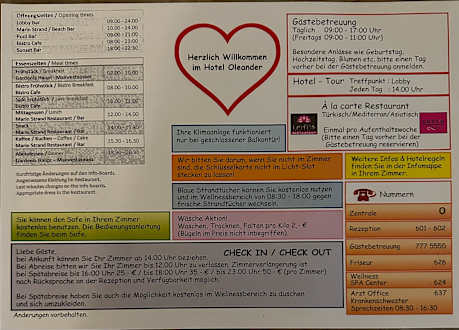 Öffnungszeiten / Opening times
Lobby Bar 09:00 - 24:00
Marin Strand / Beach Bar 10:00 - 24:00
Pool Bar 09:00 - 24:00
Bistro Cafe 08:00 - 23:00
Sunset Bar 18:00 - 22:30
Essenszeiten / Meal times
Frühstück / Breakfast
Gardenia Haupt - Mainrestaurant
Bistro Frühstück / Bistro Breakfast
Bistro Cafe
Mittagessen / Lunch
Marin Strand Restaurant / Bar
Snack
Marin Strand Restaurant / Bar
Kaffee / Kuchen - Coffee / Cake
Marin Strand Restaurant / Bar
Gardenia Haupt - Mainrestaurant
Kurzfristige Änderungen auf den Info-Boards.
Angemessene Kleidung im Restaurant.
Last minutes changes on the info boards.
Appropriate dress in the restaurant.
Herzlich Willkommen
im Hotel Oleander
Gästebetreuung
Täglich 09:00 - 17:00 Uhr
(Freitags 09:00 - 11:00 Uhr)
Besondere Anlässe wie Geburtstag,
Hochzeitstag, Blumen etc. bitte einen Tag
vorher bei der Gästebetreuung anmelden.
Hotel - Tour Treffpunkt : Lobby
Jeden Tag : 14:00 Uhr
À la carte Restaurant
Türkisch/Mediterran/Asiatisch
Einmal pro Aufenthaltwoche
(Bitte einen Tag vorher bei der
Gästebetreuung reservieren)
Ihre Klimaanlage funktioniert
nur bei geschlossener Balkontür!
Wir bitten Sie darum, wenn Sie nicht im Zimmer
sind, die Schlüsselkarte nicht im Licht-Slot
stecken zu lassen!
Weitere Infos & Hotelregeln
finden Sie in der Infomappe
in Ihrem Zimmer.
Blaue Strandtücher können Sie kostenlos nutzen
und im Wellnessbereich von 08:30 - 18:00 gegen
frische Strandtücher wechseln.
Nummern
Zentrale 0
Rezeption 601 - 602
Gästebetreuung 777 5550
Friseur 626
Wellness
SPA Center 624
Arzt Office 637
Krankenschwester
Sprechzeiten 08:30 - 16:30
Sie können den Safe in Ihrem Zimmer
kostenlos benutzen. Die Bedienungsanleitung
finden Sie beim Safe.
Wäsche Aktion!
Waschen, Trocknen, Falten pro Kilo 2,- €
(Bügeln im Preis nicht inbegriffen).
CHECK IN / CHECK OUT
Liebe Gäste,
bei Ankunft können Sie Ihr Zimmer ab 14:00 Uhr beziehen.
Bei Abreise bitten wir Sie Ihr Zimmer bis 12:00 Uhr zu verlassen. Zimmerverlängerung ist
bei Spätabreise bis 16:00 Uhr 25.- € / bis 18:00 Uhr 35.- € / bis 23:00 Uhr 50.- € (pro Zimmer)
nach Rücksprache an der Rezeption und Verfügbarkeit möglich.
Bei Spätabreise haben Sie auch die Möglichkeit kostenlos im Wellnessbereich zu duschen
und sich umzukleiden.
Änderungen vorbehalten.